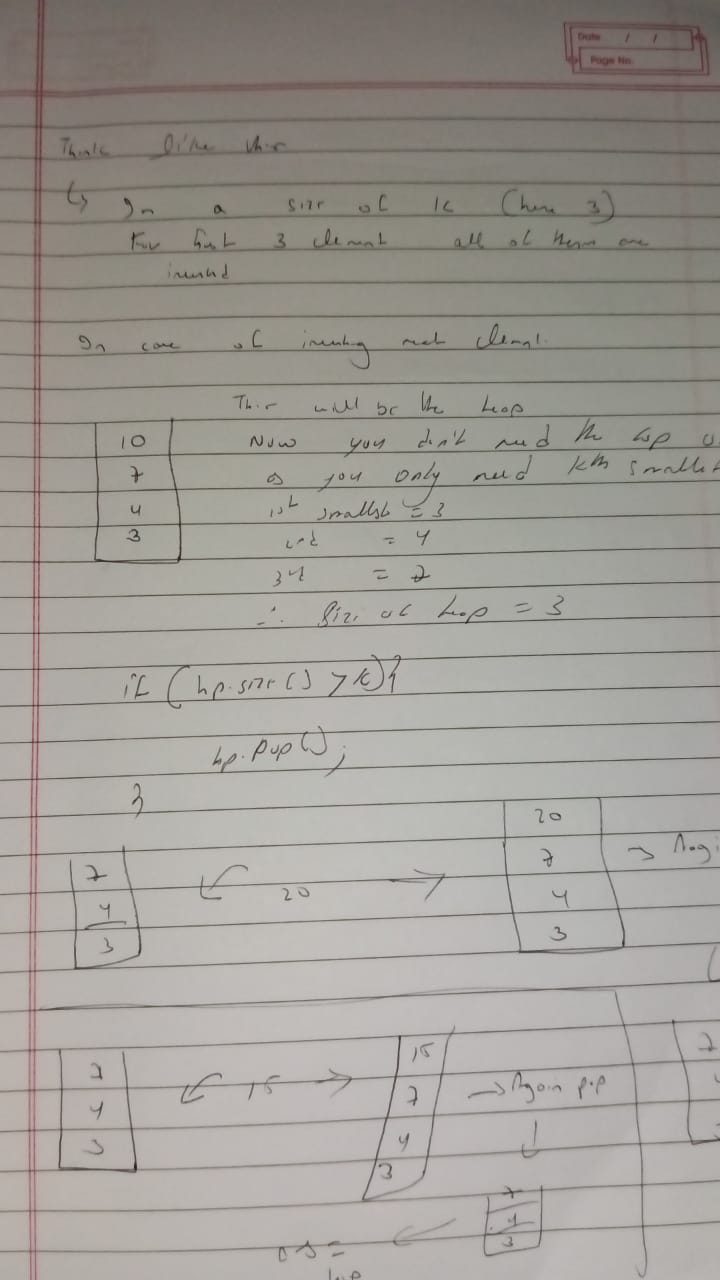 Date / /
Page No.
Think like this
↳ In a size of K (here 3)
For first 3 element all of them are
inserted
In case of inserting next element.
This will be the heap
10
7
4
3
Now you don't need the top
as you only need kth smallest
1st smallest = 3
2nd = 4
3rd = 7
∴ Size of heap = 3
if (hp.size() > k){
hp.pop();
}
7
4
3
← 20 →
20
7
4
3
7
4
3
← 15 →
15
7
4
3
→ Again pop
↓
7
4
3
7
←